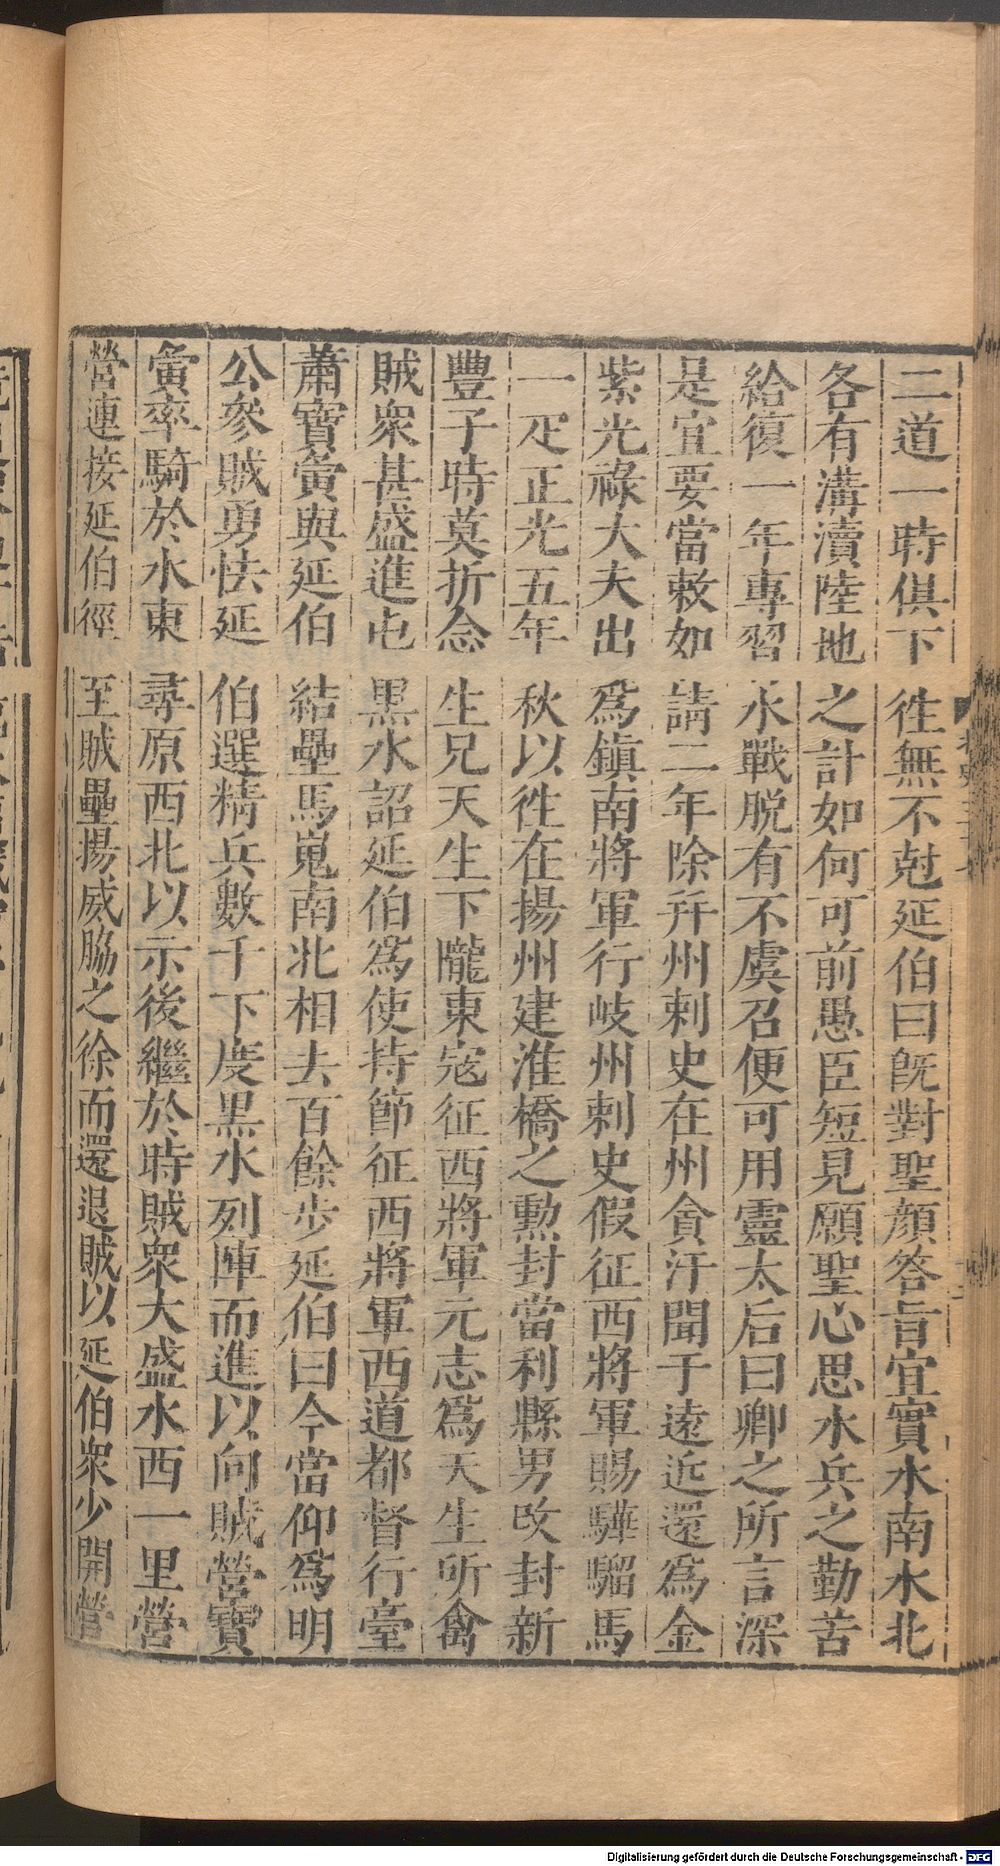 二道一時俱下徃無不尅延伯曰旣對聖顔答旨宜實水南水北
各有溝瀆陸地之計如何可前愚臣短見願聖心思水兵之勤苦
給復一年專習水戰脱有不虞召便可用靈太后曰卿之所言深
是宜要當敕如請二年除幷州剌史在州貪汙聞于遠近還爲金
紫光祿大夫出爲鎭南將軍行岐州剌史假征西將軍賜驊騮馬
一疋正光五年秋以徃在揚州建淮橋之勲封當利縣男改封新
豐子時莫折念生兄天生下隴東宼征西將軍元志爲天生所禽
賊衆甚盛進屯黑水詔延伯爲使持節征西將軍西道都督行臺
蕭寶夤與延伯結壘馬嵬南北相去百餘步延伯曰今當仰爲明
公參賊勇怯延伯選精兵數千下度黑水列陣而進以向賊營寶
夤率騎於水東尋原西北以示後繼於時賊衆大盛水西一里營
營連接延伯徑至賊壘揚威脇之徐而還退賊以延伯衆少開營
Digitalisierung gefördert durch die Deutsche Forschungsgemeinschaft - DFG